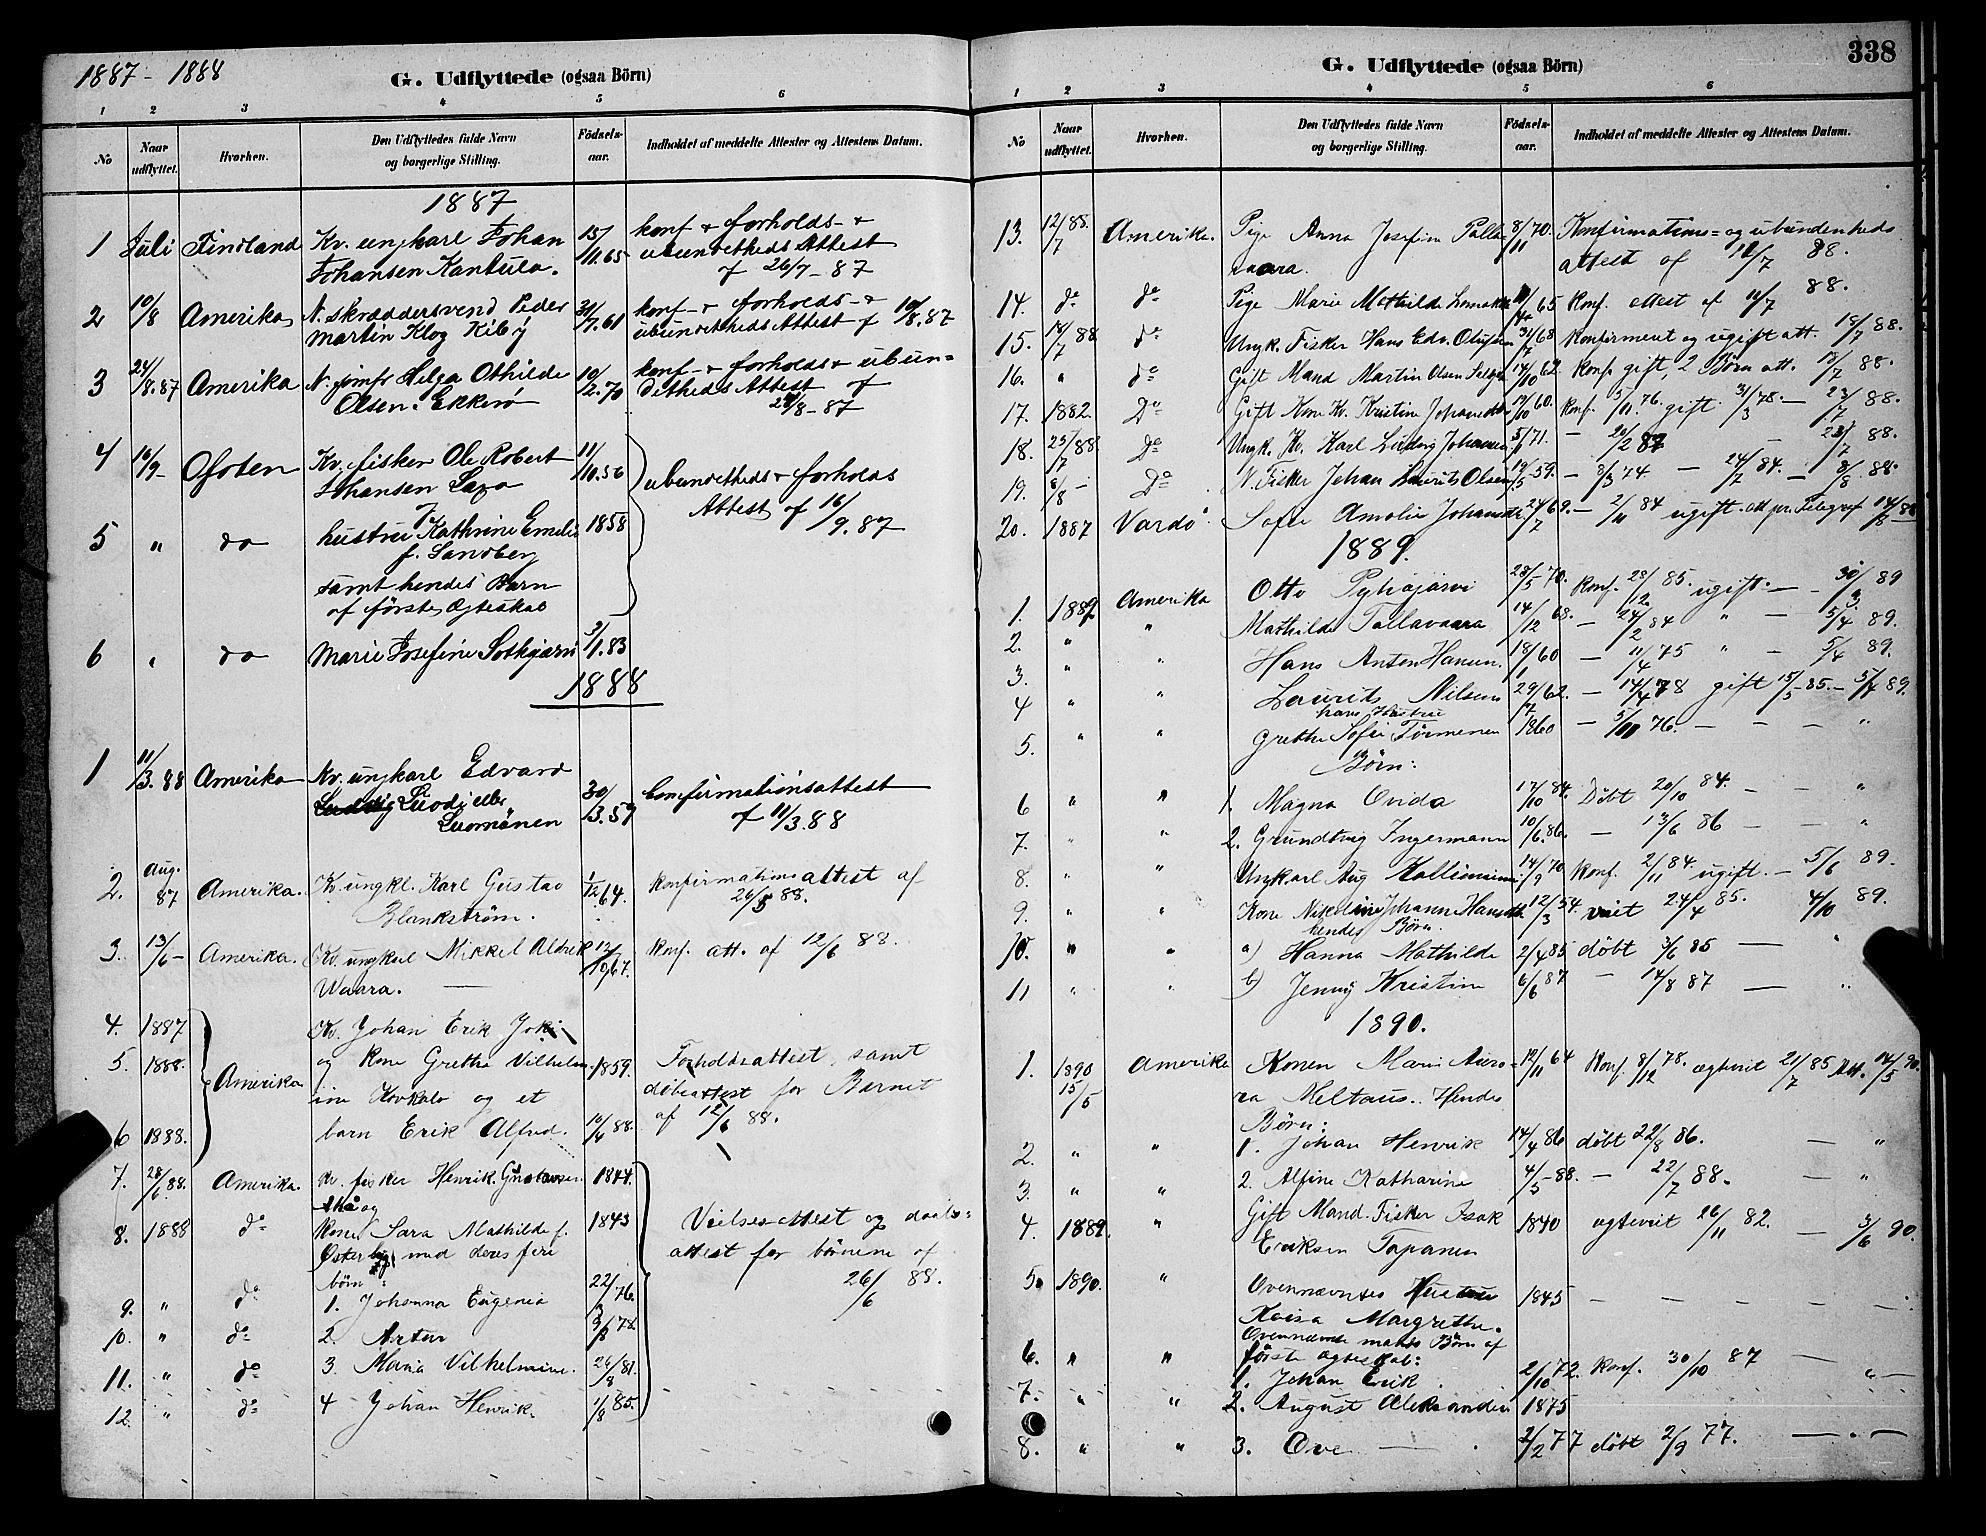 1887 - 1888
G. Udflyttede (ogsaa Börn)
1 2 3 4 5 6
No Naar udflyttet. Hvorhen. Den Udflyttedes fulde Navn og borgerlige Stilling. Födsels-aar. Indholdet af meddelte Attester og Attestens Datum.
1887
1 Juli Finland Kv. ungkarl Johan 15/ konf - forholds- +
Johansen Kantula. 11.65 ubundetheds Attest
af 26/7 - 87
2 10/8 Amerika N. skræddersvend Peder 31/ konf - + forholds - +
Martin Klog Kiby 7.61 ubundetheds Attest af 10/8.87
3 24/8.87 Amerika N. jomfr Helga Othilde 10/ konf - + forholds + ubun=
Olsen. Ekkerö 2.70 detheds Attest af
24/8 - 87
4 16/9- Ofoten Kv. fisker Ole Robert 11/
Johansen 10.56 ubundetheds + forholds
Attest af 16/9.87
5 " do hustru Kathrine Emelie 1858
f. Sandberg
samt hendes Barn
af förste Ægteskab
6 " do Marie Josefine 3/1.83
1888
1 11/3.88 Amerika Kv. ungkarl Edvard
Luodi eller 30/3.59 Confirmationsattest
Luomanen af 11/3.88
2. Aug. 87 Amerika. Kv. ungkl. Karl Gustav 1/12 64. Konfirmationsattest af
Blankström. 26/5 88.
3. 13/6 - Amerika. Kv. ungkarl Mikkel Aldrik 12/10 67. Konf. att. af 12/6 88.
Waara.
4. 1887 Kv. Johan Erik Joki
5. 1888. Amerika. og Kone Grethe Vilhelm- 1859. Forholdsattest, samt
ine og et döbeattest for Barnet
6 1888. barn Erik Alfred. 10/4 88. af 12/6 88.
7. 28/6 88. Amerika. Kv. fisker Henrik Gustavsen 1844.
og
8. 1888 do Kone Sara Mathilde f. 1843 Vielsesattest og daabs=
med deres fire attest for börnene af
börn: 26/6 88.
9. " do 1. Johanna Eugenia 22/3 76.
10. " do 2. Artur 3/8 78.
11. " do 3 Maria Vilhelmine. 26/8 81.
12. " do 4 Johan Henrik. 1/8 85.
338
G. Udflyttede (ogsaa Börn)
1 2 3 4 5 6
No Naar udflyttet. Hvorhen. Den Udflyttedes fulde Navn og borgerlige Stilling. Födsels-aar. Indholdet af meddelte Attester og Attestens Datum.
13. 12/7 88. Amerika. Pige Anna Josefine Palla- 8/11 70. Konfirmations= og ubundenheds
vaara. attest af 12/7 88.
14. do do Pige Marie Mathilde 65 Konf. attest af 11/7 88.
15. 14/7 88 do Ungk. Fisker Hans Edv. Olufsen 31/7 68 Konfirment og ugift att. 18/7 88.
16. " do Gift Mand Martin Olsen 14/10 62. Konf. gift, 2 Börn att. 88.
17. 1882. Do Gift Kone Kv. Kristine 60. Konf. 5/11 76. gift 31/3 78. — 23/7 88.
18. 25/7 88. do Ungk. Kv. Karl Ludvig Johansen 5/1 71. — 20/2 87 — 23/7 88.
19. 8/8 - Do N. Fisker Johan Laurits Olsen 19/5 59. — 8/3 74 — 24/7 84. — 8/8 88.
20. 1887 Vardö Sofie Amalie Johansdtr. 24/7 69. — 2/11 84 ugift. att pr. Telegraf 14/8 88
1889.
1. 1889 Amerika Otto Pyhäjärvi 28/5 70. Konf. 28/12 85. ugift. — 30/3 89
2. " " Mathilde Pallavaara 14/12 68. — 24/2 84 " — 5/4 89.
3. " " Hans Anton Hansen. 18/1 60 — 11/4 75 " — 5/4 89.
4 " " Laurits Nilsen 29/7 62. — 14/4 78 gift 15/5 - 85. — 5/4 89.
hans Hustru
5. " " Grethe Sofie Törmenen 1860 — 5/11 76. — — — "
Börn:
6 " " 1. Magna Ovida 17/10 84. Döbt 20/10 84. — — "
7. " " 2. Grundtvig Ingermann 10/6 86. — 13/6 86 — — "
8. " " Ungkarl Aug 14/9 70 Konf. 2/11 84. ugift. — 5/6 89.
9. " " Kone Nikoline Johanne 12/3 54. viet 24/4 85. 4/10 89.
hendes Börn:
10. " " a) Hanna Mathilde 2/4 85 döbt 3/6 85 — "
11 " " b) Jenny Kristine 6/6 87 — 14/8 87 — "
1890.
1. 1890 Amerika Konen Mari Auro= 12/11 64 Konf. 8/12 78. ægteviet 21/7 85 Att. 14/5 90.
15/5 ra Meltaus. Hendes
Börn:
2. " " 1. Johan Henrik 14/4 86 döbt 22/8 86. — "
3. " " 2. Alfine Katharine 4/5 - 88. — 22/7 88. — "
4. 1889. " Gift Mand. Fisker Isak 1840 ægteviet 26/11 82. — 3/6 90.
Eriksen Tapanen
5. 1890. " Ovennævntes Hustru 1845 — — — — —
Kaisa Margrethe.
Ovennævnte mands Börn af
6. " " förste ægteskab:
1. Johan Erik 2/10 72. Konf. 30/10 87 — "
7. " " 2. August Aleksander 1875
8. " " 3. Ove — 2/2 77 döbt 2/9 77. — " —